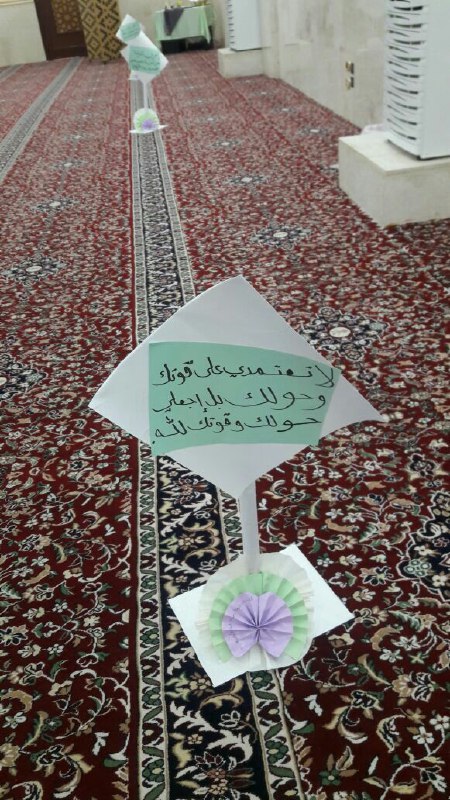 لا تعتمدي على قوتك
وحولك بل إجعلي
حولك وقوتك لله